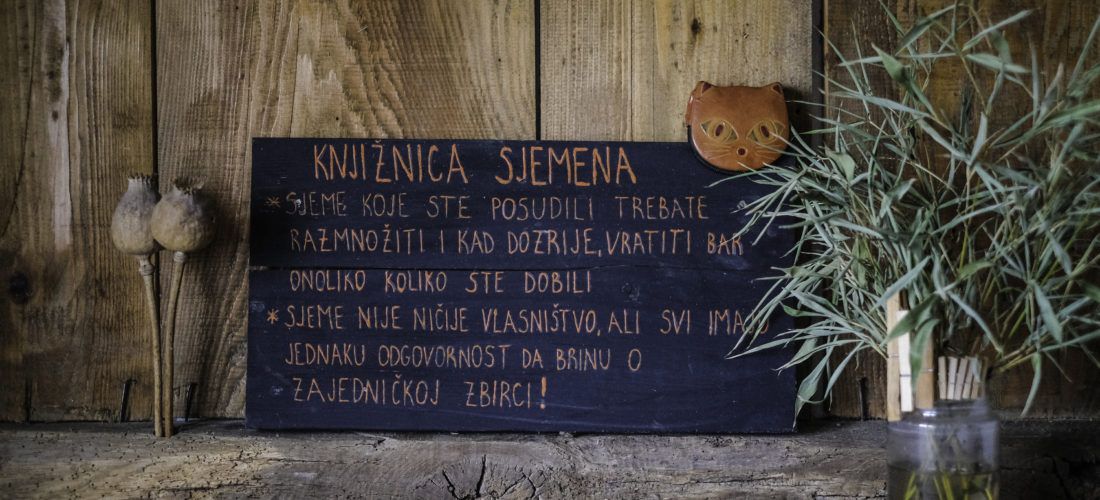 KNJIŽNICA SJEMENA
*SJEME KOJE STE POSUDILI TREBATE
RAZMNOŽITI I KAD DOZRIJE, VRATITI BAR
ONOLIKO KOLIKO STE DOBILI
*SJEME NIJE NIČIJE VLASNIŠTVO, ALI SVI IMAJU
JEDNAKU ODGOVORNOST DA BRINU O
ZAJEDNIČKOJ ZBIRCI!